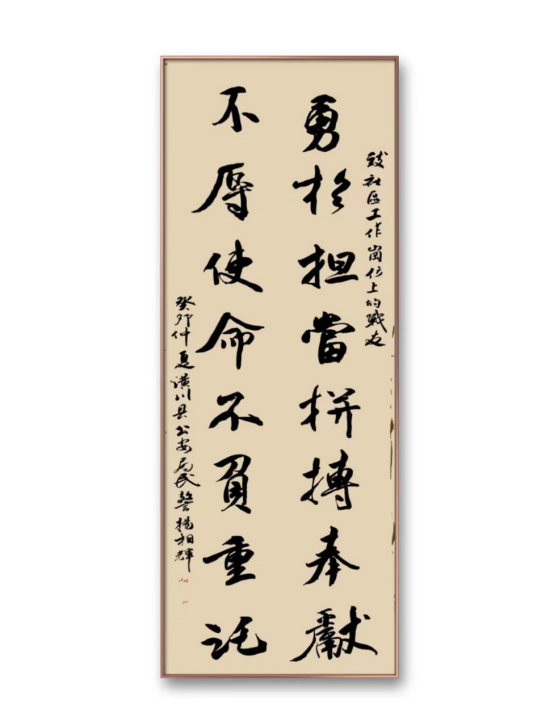 致社区工作岗位上的战友
勇於担當拼搏奉獻
不辱使命不負重託
癸卯仲夏潢川县公安局民警杨相辉